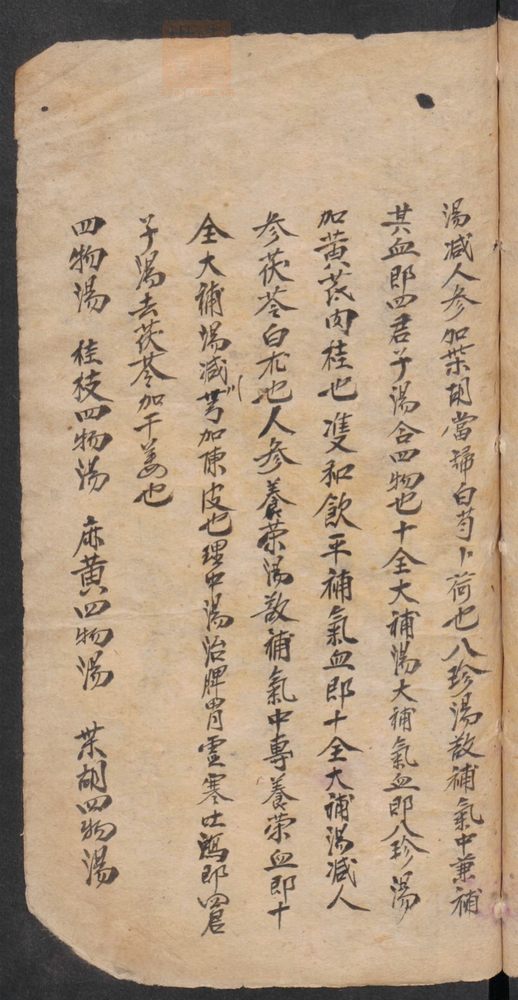 湯减人參加柴胡當歸白芍卜荷也八珍湯散補氣中兼補
其血即四君子湯合四物也十全大補湯大補氣血即八珍湯
加黃芪肉桂也雙和飲平補氣血即十全大補湯减人
參茯苓白朮也人參養荣湯散補氣中專養荣血即十
全大補湯减川芎加陳皮也理中湯治脾胃虛寒吐瀉即四君
子湯去茯苓加干姜也
四物湯 桂枝四物湯 麻黃四物湯 柴胡四物湯